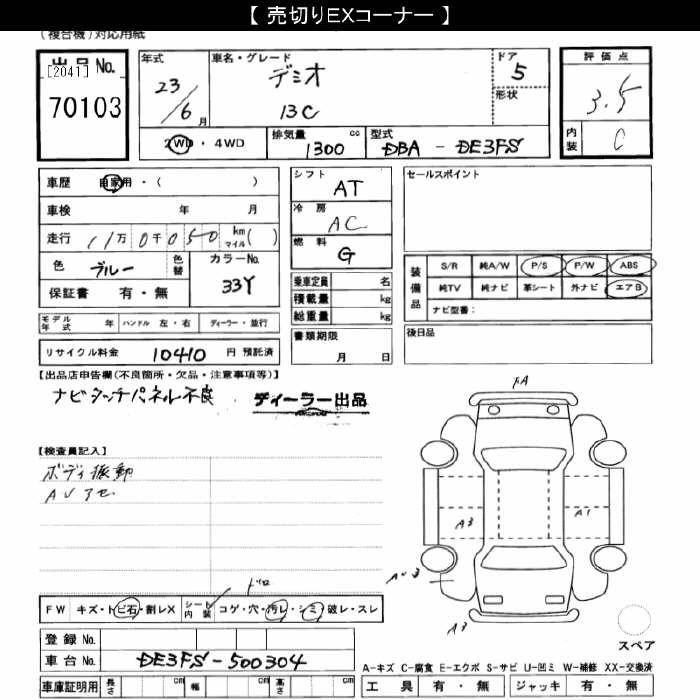 【 売切りEXコーナー 】
(複合機)対応用紙
出品 No.
[2041]
70103
年式
23/6月
車名・グレード
デミオ
13C
ドア
5
形状
評価点
3.5
内装
C
2WD ・ 4WD
排気量
1300 cc
型式
DBA - DE3FS
車歴 自家用 ・ ( )
車検 年 月
走行 11万0千050 km マイル ( )
色 ブルー 色替
カラーNo.
33Y
保証書 有 ・ 無
シフト
AT
冷房
AC
燃料
G
乗車定員 名
積載量 kg
総重量 kg
書類期限
月 日
セールスポイント
装備品
S/R 純A/W P/S P/W ABS
純TV 純ナビ 革シート 外ナビ エアB
ナビ型番:
後日品
モデル年式 年 ハンドル 左・右 ディーラー・並行
リサイクル料金 10410 円 預託済
【出品店申告欄(不良箇所・欠品・注意事項等)】
ナビタッチパネル不良
ディーラー出品
【検査員記入】
ボディ振動
FA
A3
A1
A3
ドロ
FW キズ・トビ石・割レX シート内装 コゲ・穴・汚レ・シミ・破レ・スレ
登録 No.
車台 No. DE3FS-500304
車庫証明用 長さ cm 幅 cm 高さ cm
スペア
A-キズ C-腐食 E-エクボ S-サビ U-凹ミ W-補修 XX-交換済
工具 有・無 ジャッキ 有・無